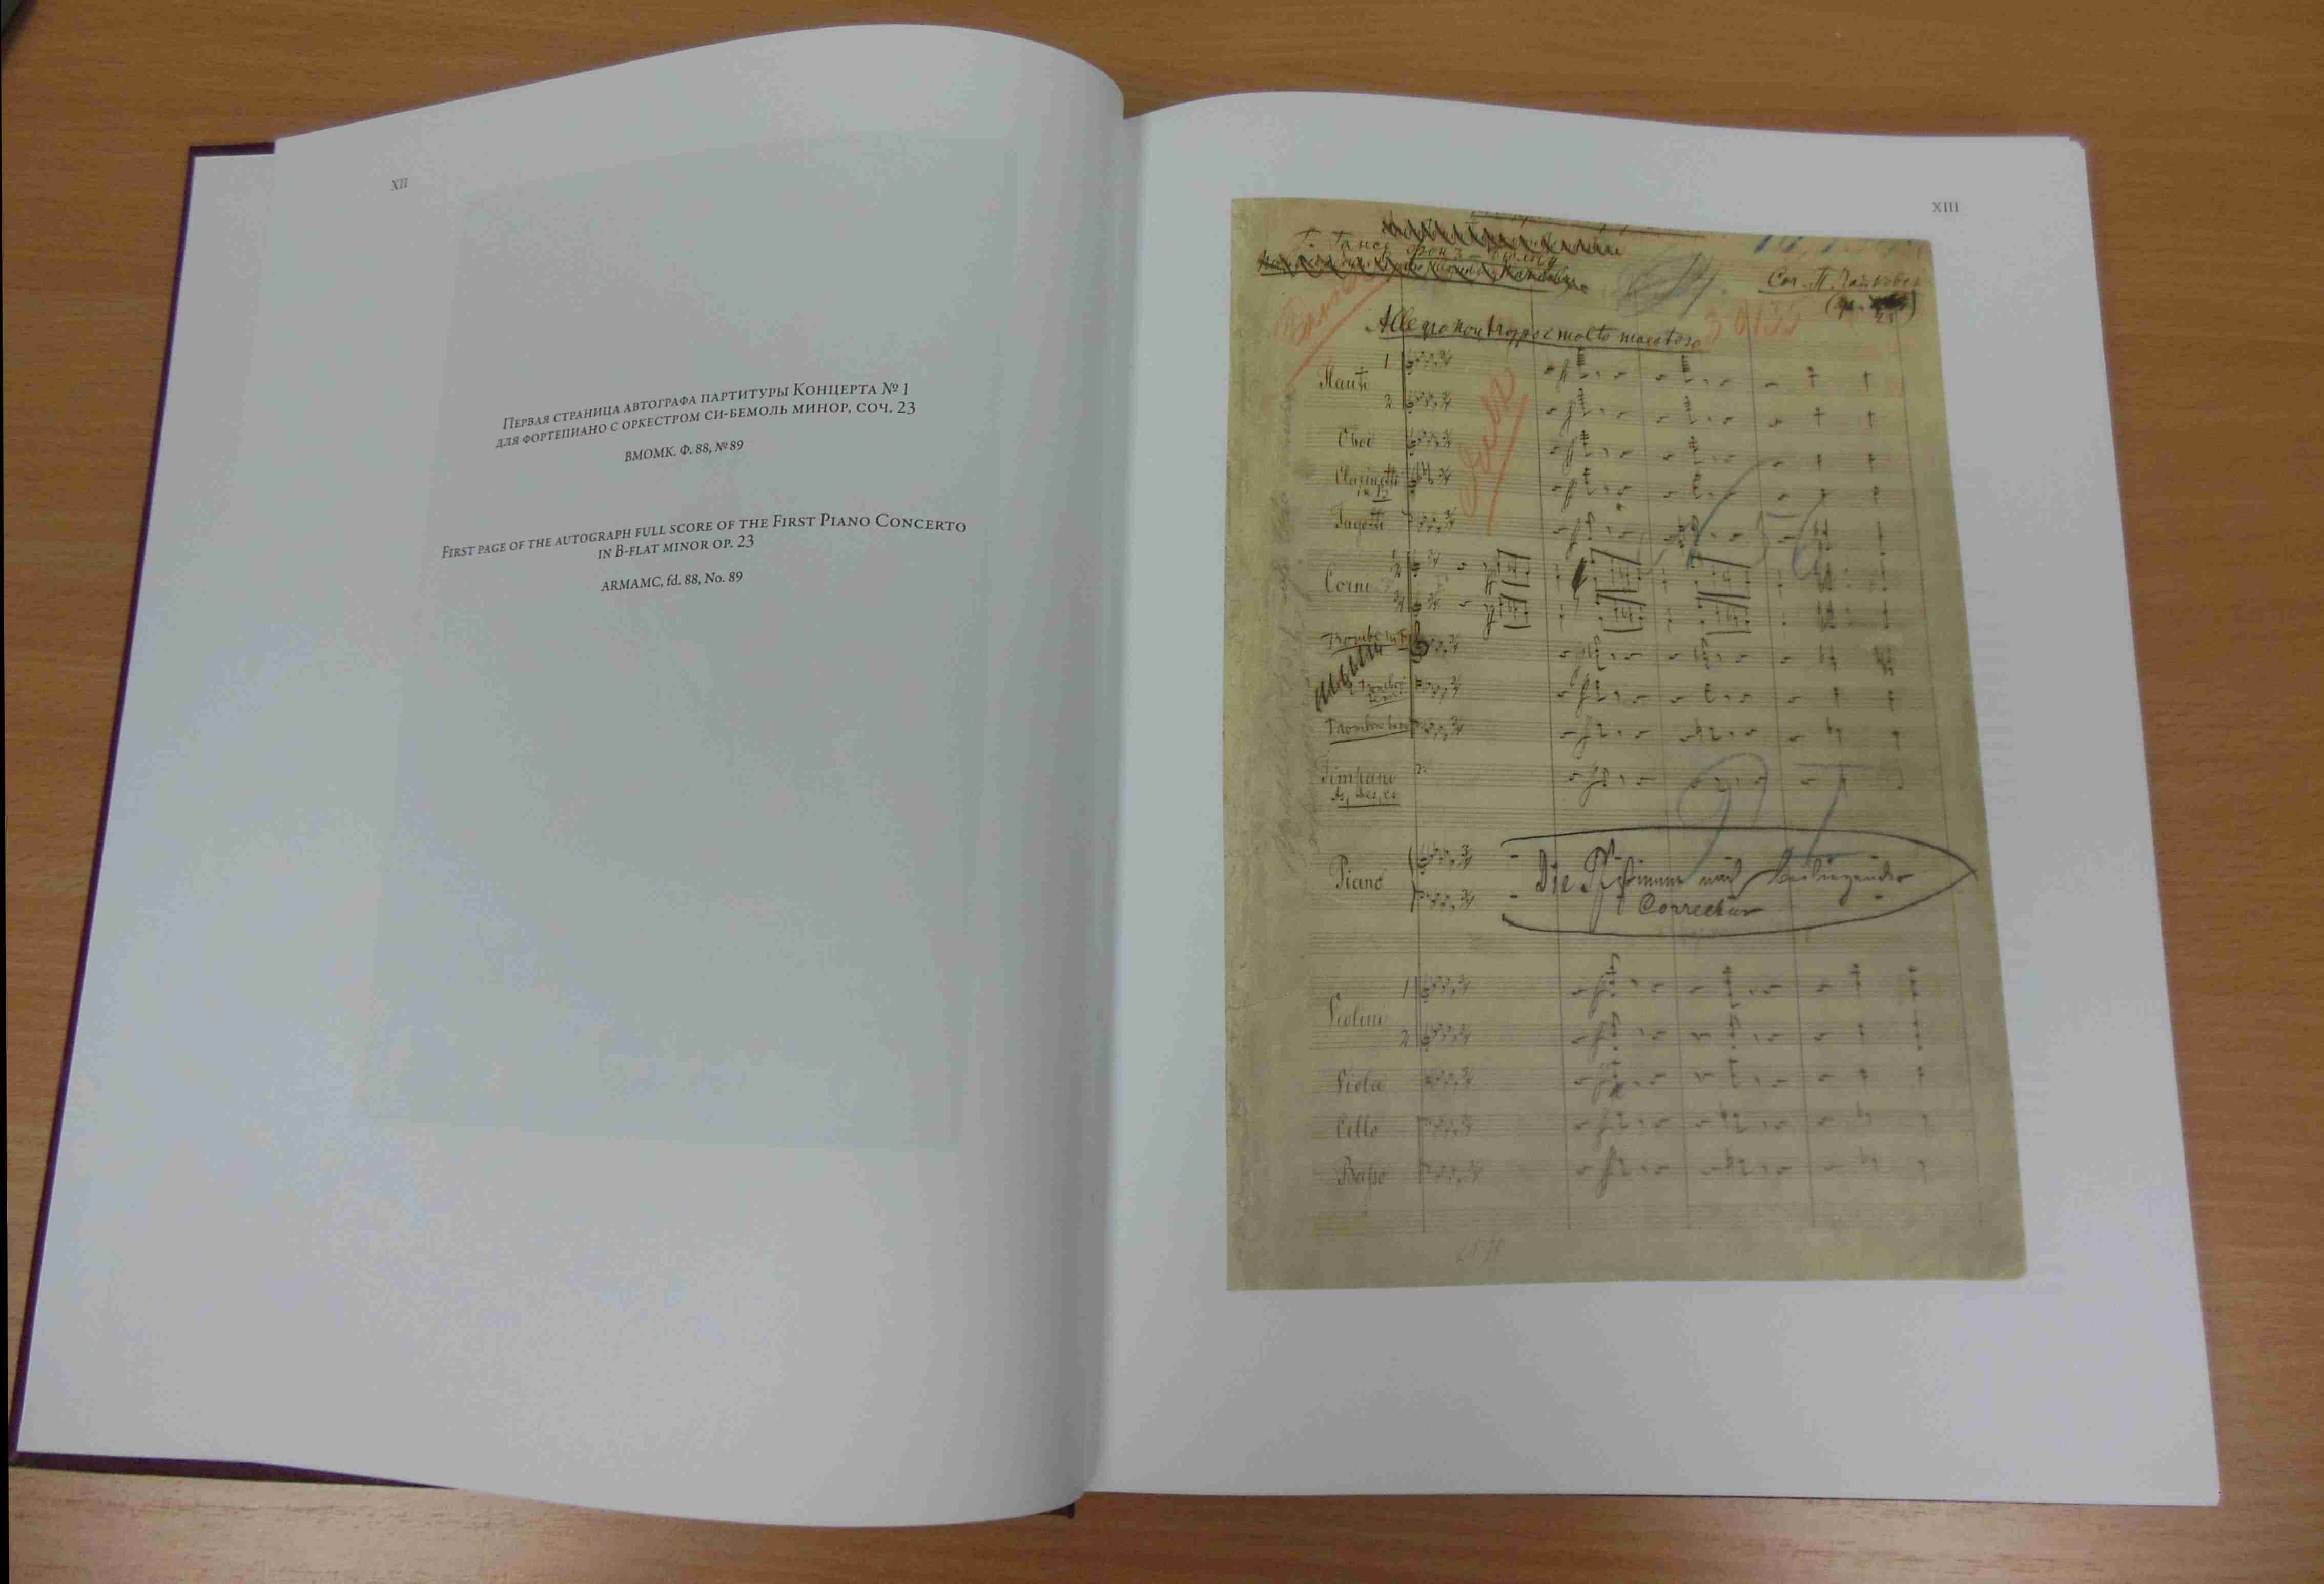 XII
Первая страница автографа партитуры Концерта № 1
для фортепиано с оркестром си-бемоль минор, соч. 23
ВМОМК. Ф. 88, № 89
First page of the autograph full score of the First Piano Concerto
in B-flat minor op. 23
ARMAMC, fd. 88, No. 89
XIII
Соч. П. Чайковск
Allegro non troppo e molto maestoso
30135
1
Flauti
2
Oboi
Clarinetti
in B
Fagotti
Corni
Trombe in F
Trombone basso
Timpani
Piano
Die Pfstimme nach
Correctur
1
Violini
2
Viola
Cello
Basso